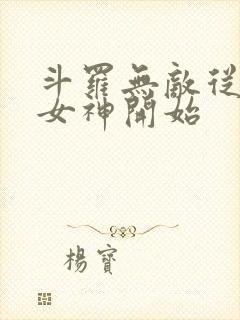 斗羅無敵從
女神開始
楊寶